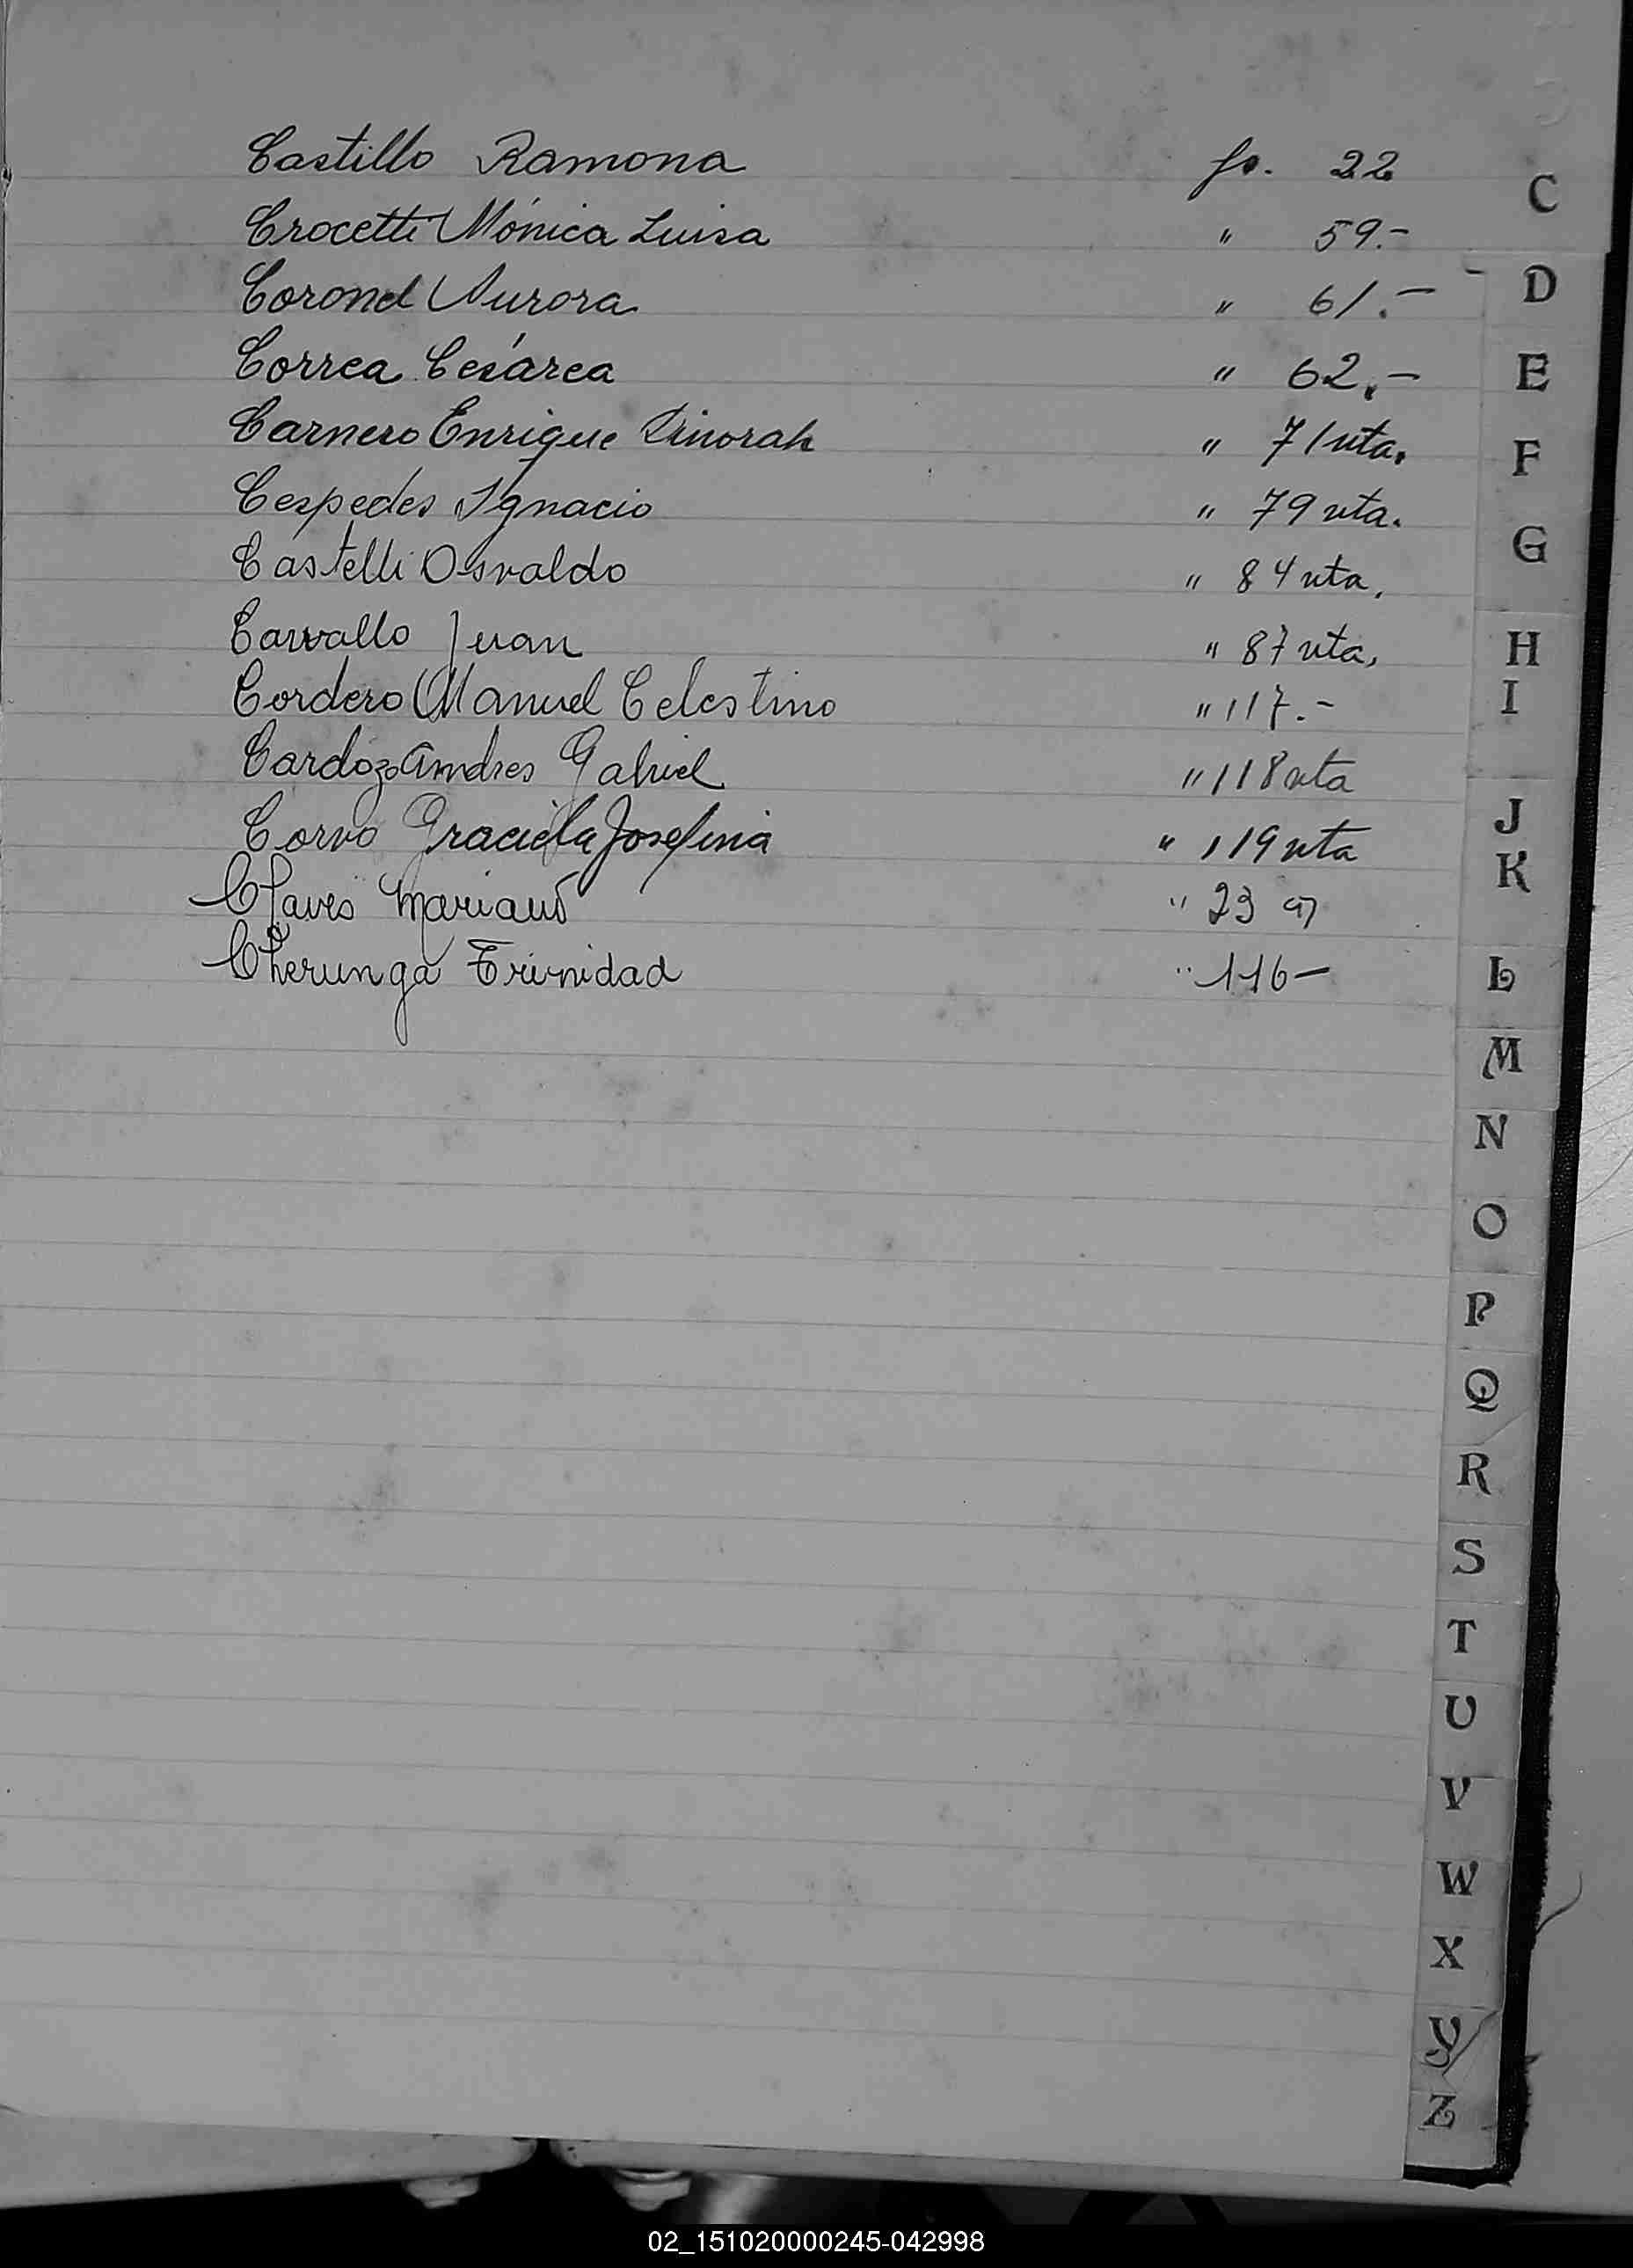 Castillo Ramona fs. 22
Crocetti Mónica Luisa " 59.-
Coronel Aurora " 61.-
Correa Cesárea " 62.-
Carnero Enrique Dinorah " 71 vta.
Cespedes Ignacio " 79 vta.
Castelli Osvaldo " 84 vta.
Carvallo Juan " 87 vta.
Cordero Manuel Celestino " 117.-
Cardozo Andres Gabriel " 118 vta
Corvo Graciela Josefina " 119 vta
Mariano " 23
Cherunga Trinidad " 116 -
C
D
E
F
G
H
I
J
K
L
M
N
O
P
Q
R
S
T
U
V
W
X
Y
Z
02_151020000245-042998